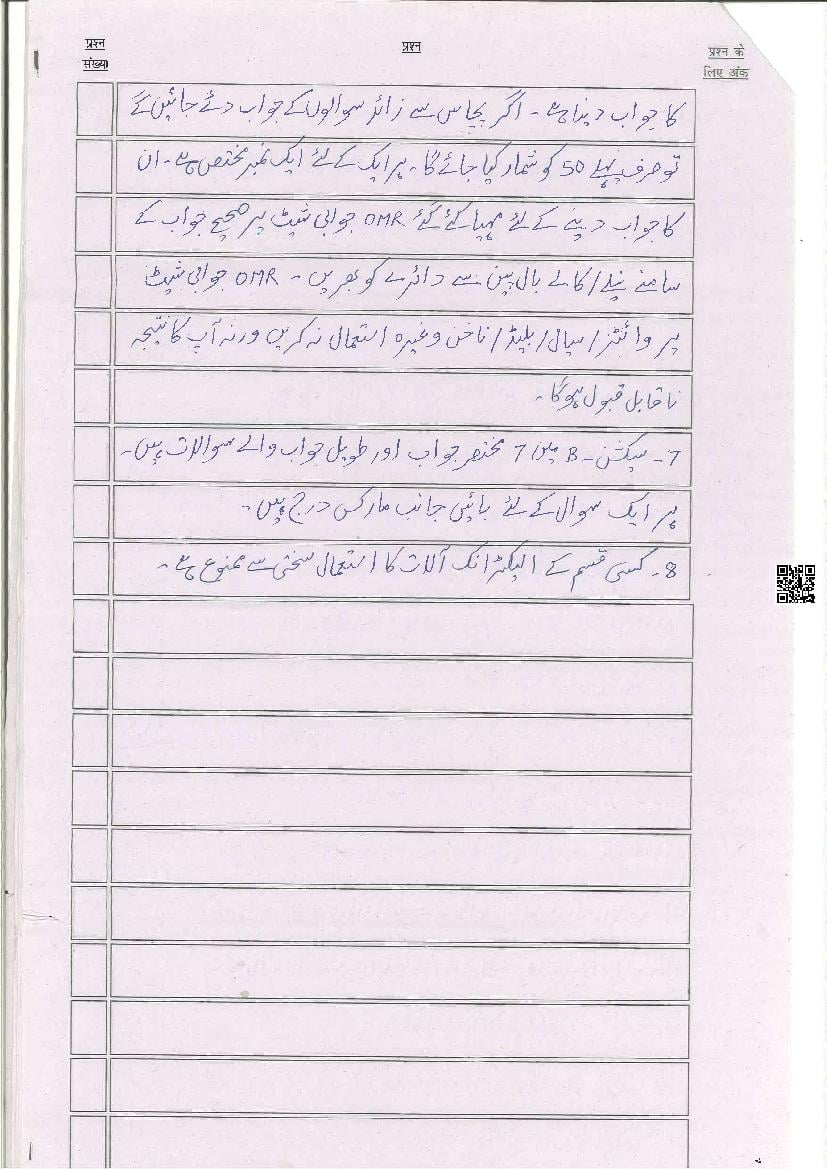 प्रश्न संख्या
प्रश्न
प्रश्न के लिए अंक
کا جواب دینا ہے۔ اگر پچاس سے زائد سوالوں کے جواب دئے جائیں گے
تو صرف پہلے 50 کو شمار کیا جائے گا۔ ہر ایک کے لئے ایک نمبر مختص ہے۔ ان
کا جواب دینے کے لئے مہیا کئے گئے OMR جوابی شیٹ پر صحیح جواب کے
سامنے نیلے/کالے بال پین سے دائرے کو بھریں۔ OMR جوابی شیٹ
پر وائٹنر/سیال/بلیڈ/ناخن وغیرہ استعمال نہ کریں ورنہ آپ کا نتیجہ
ناقابل قبول ہوگا۔
7۔ سیکشن۔B میں 7 مختصر جواب اور طویل جواب والے سوالات ہیں۔
ہر ایک سوال کے لئے بائیں جانب مارکس درج ہیں۔
8۔ کسی قسم کے الیکٹرانک آلات کا استعمال سختی سے ممنوع ہے۔